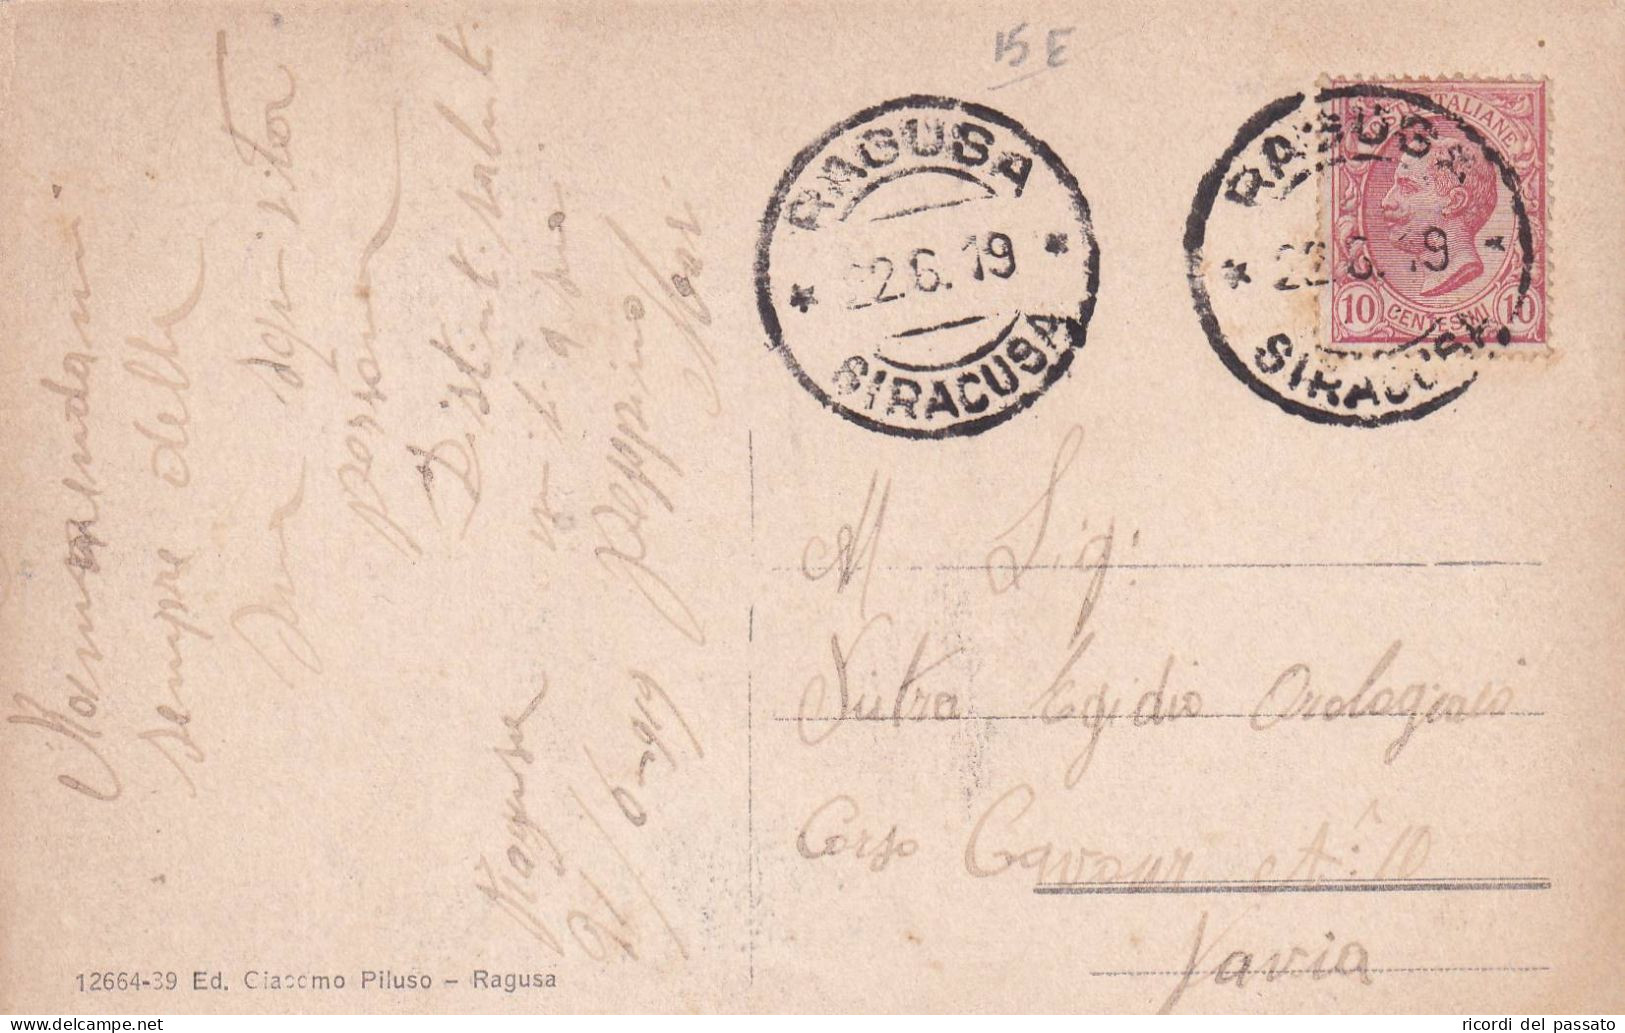 15 E
RAGUSA
22.6.19
SIRACUSA
RAGUSA
22.6.19
SIRACUSA
POSTE ITALIANE
10 CENTESIMI 10
sempre della
sua
persona
Distint. salut.
Peppino
Ragusa
21/6-919
M Sig:
Egidio Orologiaio
Corso Cavour N.° 10
Pavia
12664-39 Ed. Giacomo Piluso – Ragusa
www.delcampe.net
ricordi del passato